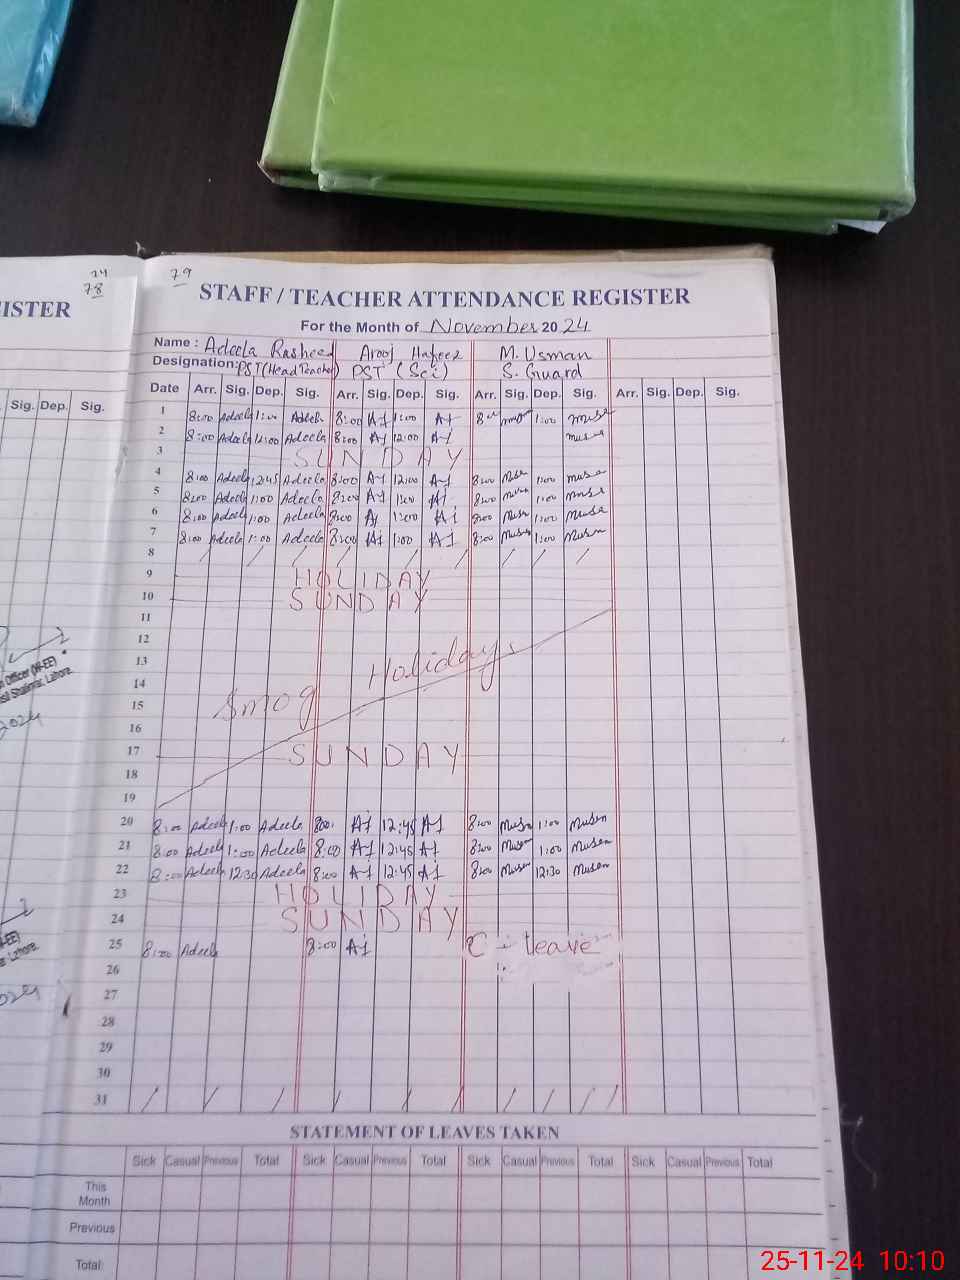 24
78
79
ISTER
STAFF / TEACHER ATTENDANCE REGISTER
For the Month of November 2024
Name : Adeela Rasheed Arooj Hafeez M. Usman
Designation: PST (Head Teacher) PST (Sci) S. Guard
Sig. Dep. Sig.
Date Arr. Sig. Dep. Sig. Arr. Sig. Dep. Sig. Arr. Sig. Dep. Sig. Arr. Sig. Dep. Sig.
1 8:00 Adeela 1:00 Adeela 8:00 AJ 1:00 AJ 1:00
2 8:00 Adeela 12:00 Adeela 8:00 AJ 12:00 AJ
3 SUNDAY
4 8:00 Adeela 12:45 Adeela 8:00 AJ 12:00 AJ 8:00 1:00
5 8:00 Adeela 1:00 Adeela 8:00 AJ 1:00 AJ 8:00 1:00
6 8:00 Adeela 1:00 Adeela 8:00 AJ 1:00 AJ 8:00 1:00
7 8:00 Adeela 1:00 Adeela 8:00 AJ 1:00 AJ 8:00 1:00
8
9 HOLIDAY
10 SUNDAY
11
12
13
14
15
Smog Holidays
16
17 SUNDAY
18
19
20 8:00 Adeela 1:00 Adeela 8:00 AJ 12:45 AJ 8:00 1:00
21 8:00 Adeela 1:00 Adeela 8:00 AJ 12:45 AJ 8:00 1:00
22 8:00 Adeela 12:30 Adeela 8:00 AJ 12:45 AJ 8:00 12:30
23 HOLIDAY
24 SUNDAY
25 8:00 Adeela 8:00 AJ C - leave
26
27
28
29
30
31
Officer (W-EE)
Shalimar, Lahore.
2024
STATEMENT OF LEAVES TAKEN
Sick Casual Previous Total Sick Casual Previous Total Sick Casual Previous Total Sick Casual Previous Total
This Month
Previous
Total
25-11-24 10:10